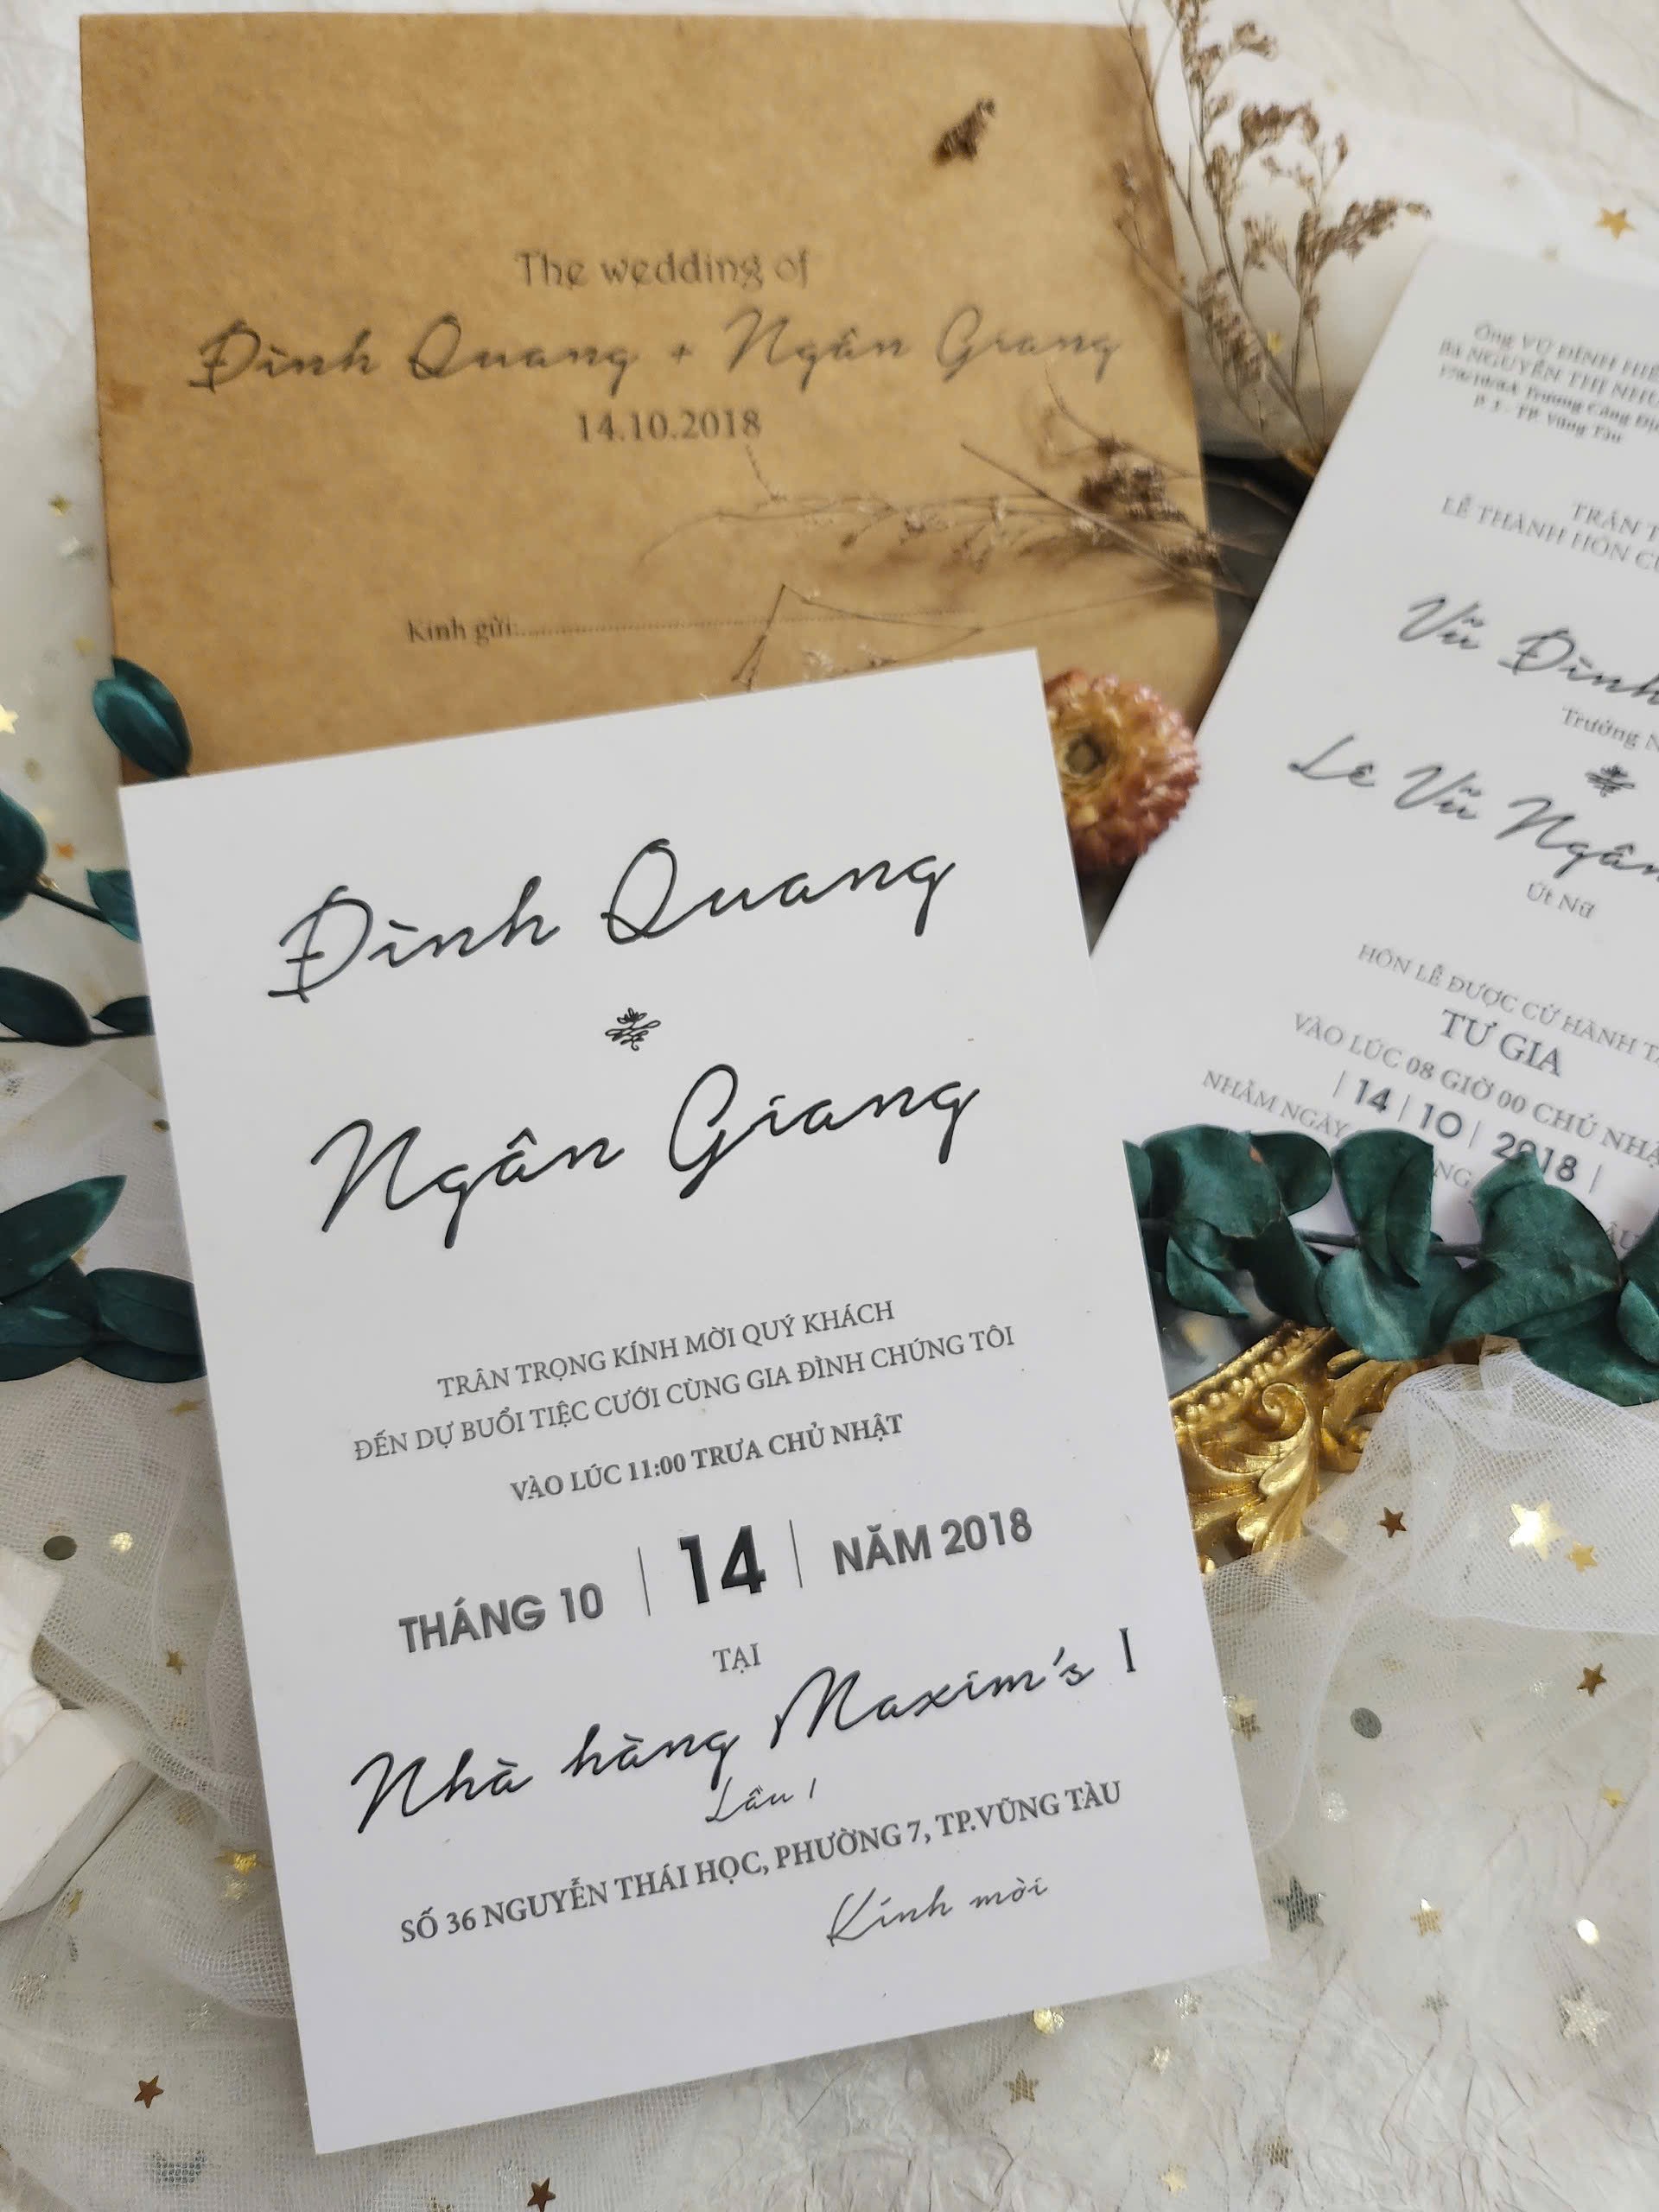 The wedding of
Đình Quang + Ngân Giang
14.10.2018
Kính gửi:
Đình Quang
Ngân Giang
TRÂN TRỌNG KÍNH MỜI QUÝ KHÁCH
ĐẾN DỰ BUỔI TIỆC CƯỚI CÙNG GIA ĐÌNH CHÚNG TÔI
VÀO LÚC 11:00 TRƯA CHỦ NHẬT
THÁNG 10 | 14 | NĂM 2018
TẠI
Nhà hàng Maxim's I
Lầu 1
SỐ 36 NGUYỄN THÁI HỌC, PHƯỜNG 7, TP.VŨNG TÀU
Kính mời
Ông VŨ ĐÌNH
Bà NGUYỄN THỊ
Trương Công
TP. Vũng Tàu
TRÂN
LỄ THÀNH HÔN
Vũ Đình
Trưởng
Lê Vũ Ngân
Út Nữ
HÔN LỄ ĐƯỢC CỬ HÀNH
TƯ GIA
VÀO LÚC 08 GIỜ 00 CHỦ
| 14 | 10 | 2018 |
NHẰM NGÀY